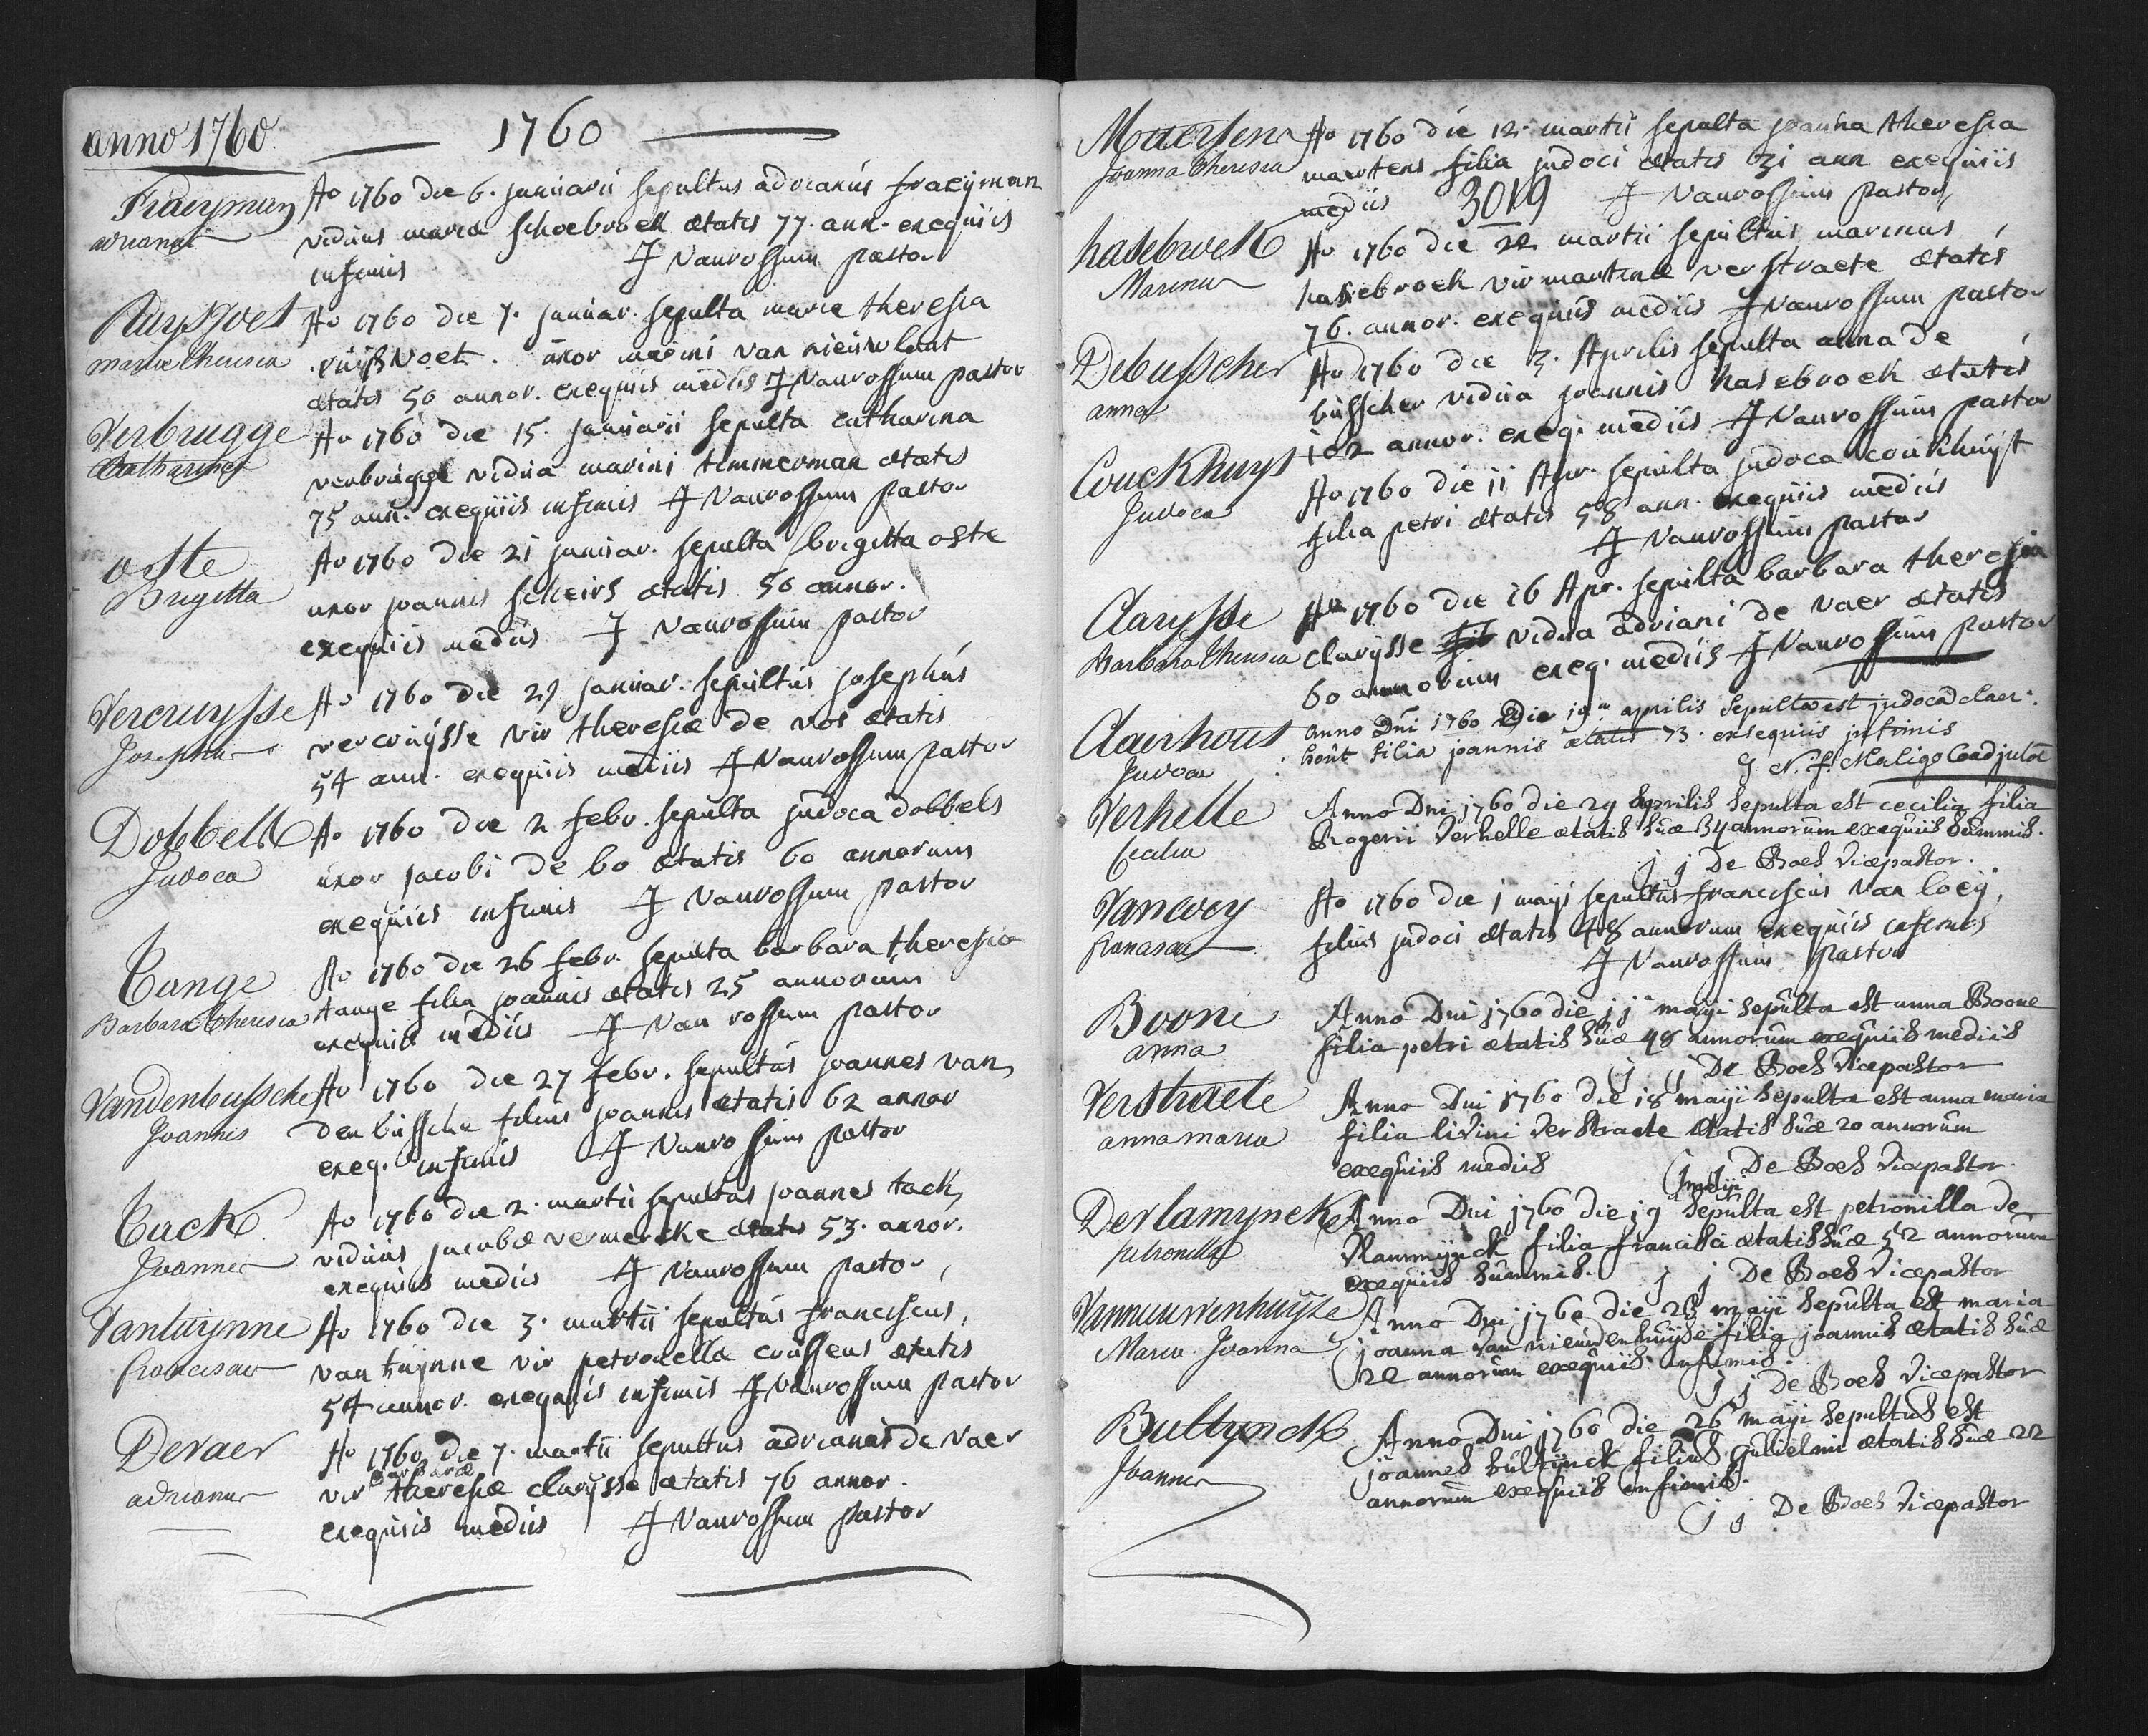 anno 1760.
1760
Fraeyman
adrianus
Ao 1760 die 6. januarii sepultus adrianus fraeijman
viduus mariæ schoebroek ætatis 77. ann. exequiis
infimis J Vanrossum pastor
Ruysvoet
maria theresia
Ao 1760 die 7. januar. sepulta maria theresia
ruijsvoet. uxor marini van nieuwlant
ætatis 50 annor. exequiis mediis J Vanrossum pastor
Verbrugge
Catharina
Ao 1760 die 15. januarii sepulta catharina
verbrugge vidua marini timmerman ætatis
75 ann. exequiis infimis J Vanrossum pastor
oste
Brigitta
Ao 1760 die 21 januar. sepulta brigitta oste
uxor joannis scheirs ætatis 50 annor.
exequiis mediis J Vanrossum pastor
Vercruysse
Josephus
Ao 1760 die 27 januar. sepultus josephus
vercruijsse vir theresiæ de vos ætatis
54 ann. exequiis mediis J Vanrossum pastor
Dobbels
Judoca
Ao 1760 die 2 febr. sepulta judoca dobbels
uxor jacobi de bo ætatis 60 annorum
exequiis infimis J Vanrossum pastor
Tange
Barbara Theresia
Ao 1760 die 26 febr. sepulta barbara theresia
tange filia joannis ætatis 25 annorum
exequiis mediis J Van rossum pastor
Vandenbussche
Joannis
Ao 1760 die 27 febr. sepultus joannes van
den bussche filius joannis ætatis 62 annor
exeq. infimis J Vanrossum pastor
Tack
Joannes
Ao 1760 die 2. martii sepultus joannes tack
viduus jacobæ vermercke ætatis 53. annor.
exequiis mediis J Vanrossum pastor
Vantuynne
franciscus
Ao 1760 die 3. martii sepultus franciscus
van tuijnne vir petronella crussens ætatis
54 annor. exequiis infimis J Vanrossum pastor
Devaer
adrianus
Ao 1760 die 7. martii sepultus adrianus de vaer
barbaræ
vir theresiæ clarysse ætatis 76 annor.
exequiis mediis J Vanrossum pastor
Maertens
Joanna Theresia
Ao 1760 die 12. martii sepulta joanna theresia
maertens filia judoci ætatis 31 ann exequiis
mediis 3019 J Vanrossum pastor
hasebroek
Marinus
Ao 1760 die 22 martii sepultus marinus
hasebroek vir martinæ verstraete ætatis
76. annor. exequiis mediis J Vanrossum pastor
Debusscher
anna
Ao 1760 die 3. Aprilis sepulta anna de
busscher vidua joannis hasebroek ætatis
102 annor. exeq. mediis J Vanrossum pastor
Couckhuyt
Judoca
Ao 1760 die 11 Apr. sepulta judoca couckhuyt
filia petri ætatis 58 ann. exequiis mediis
J Vanrossum pastor
Clarysse
Barbara Theresia
Ao 1760 die 16 Apr. sepulta barbara theresia
clarysse fil vidua adriani de vaer ætatis
60 annorum exeq. mediis J Vanrossum pastor
Claerhout
Judoca
anno Dni 1760 Die 19a aprilis sepulta est judoca claer:
hout filia joannis ætatis 73. exsequiis infimis
J. N. f. Maligo Coadjutor
Verhelle
Cecilia
Anno Dni 1760 die 29 Aprilis Sepulta est cecilia filia
Rogerii Verhelle ætatis suæ 34 annorum exequiis summis.
j j De Boes vicepastor.
Vancoey
franciscus
Ao 1760 die 1 maij sepultus franciscus van coeij,
filius judoci ætatis 48 annorum exequiis infimis
J Vanrossum Pastor
Boone
anna
Anno Dni 1760 die 11a maji sepulta est anna Boone
filia petri ætatis suæ 48 annorum exequiis mediis
j j De Boes vicepastor
Verstraete
anna maria
Anno Dni 1760 die 18 maji sepulta est anna maria
filia livini verstraete ætatis suæ 20 annorum
exequiis mediis j j De Boes vicepastor.
Devlamynck
petronilla
maiji
Anno Dni 1760 die 19 sepulta est petronilla de
vlammijnck filia francisci ætatis suæ 52 annorum
exequiis summis. j j De Boes vicepastor
Vannieuwenhuyse
Maria Joanna
Anno Dni 1760 die 23 maji sepulta est maria
joanna van nieuwenhuijse filia joannis ætatis suæ
22 annorum exequiis infimis.
j j De Boes vicepastor
Bultynck
Joannes
Anno Dni 1760 die 26 maji sepultus est
joannes bultijnck filius Gulielmi ætatis suæ 22
annorum exequiis infimis.
j j De Boes vicepastor